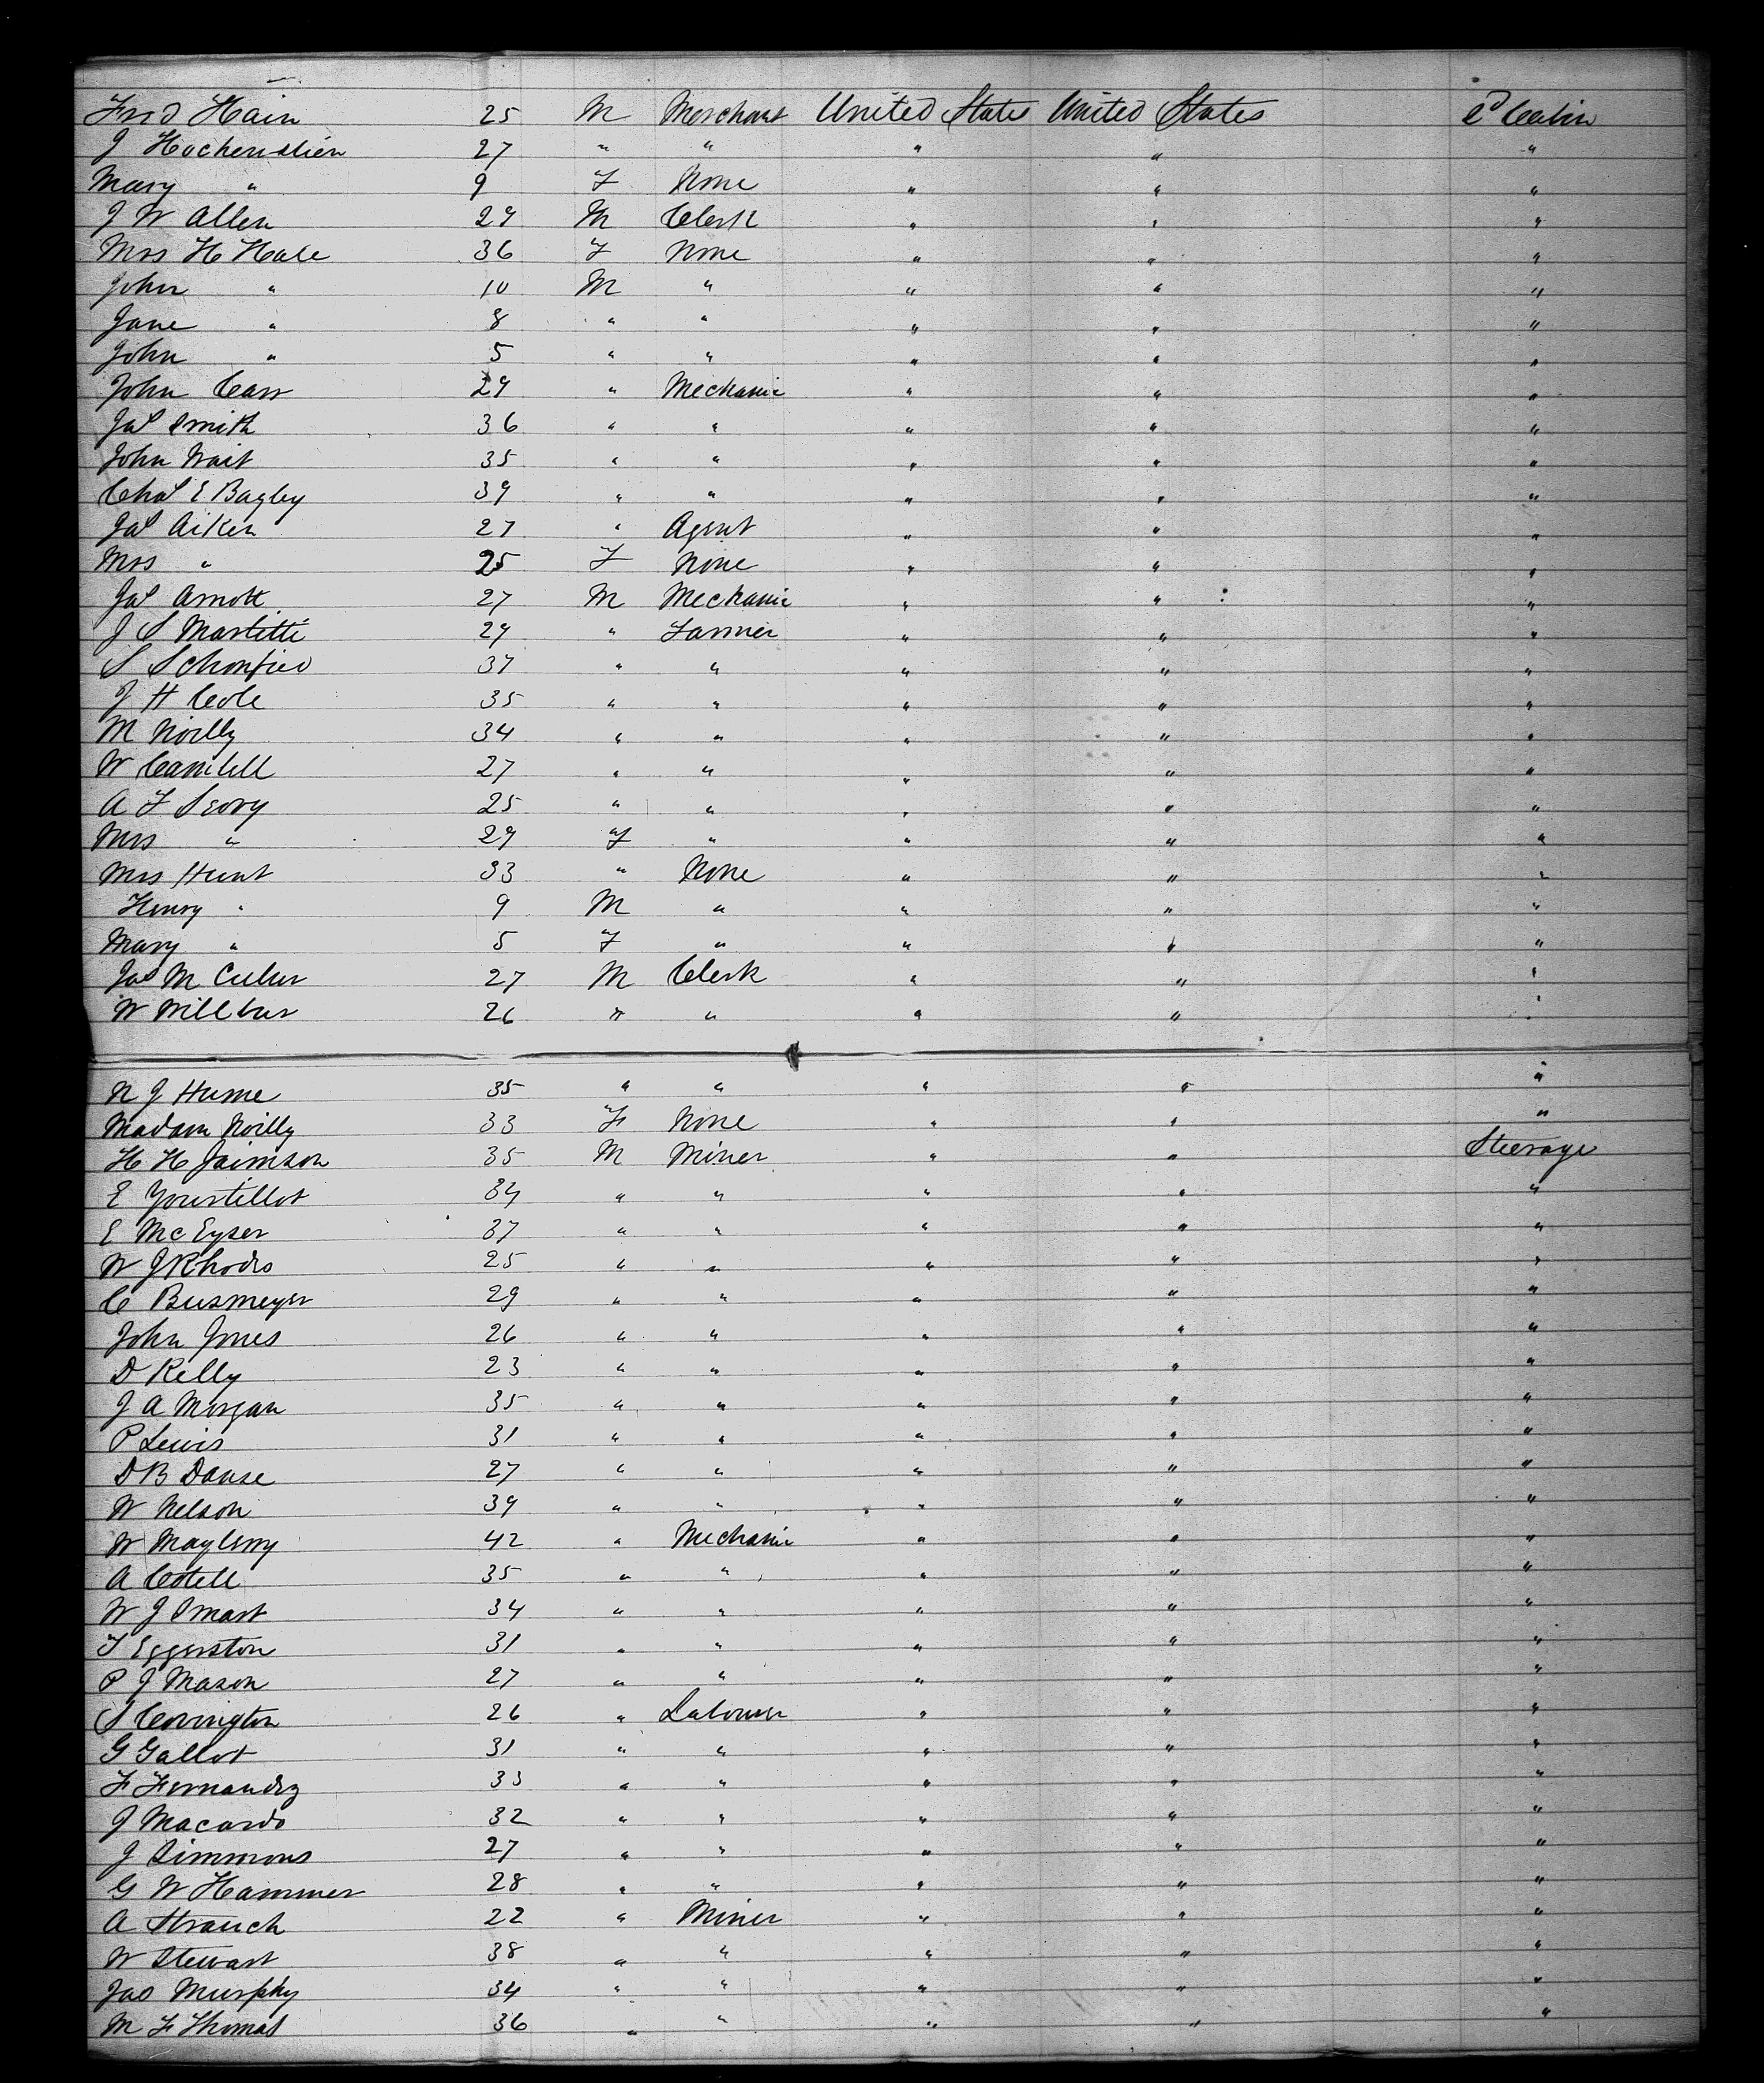 Fred Hain 25 M Merchant United State United States 2d Cabin
J Hochenstien 27 " " " " "
Mary " 9 F None " " "
J W Allen 29 M Clerk " " "
Mrs H Hale 36 F None " " "
John " 10 M " " " "
Jane " 8 " " " " "
John " 5 " " " " "
John Carr 29 " Mechanic " " "
Jas Smith 36 " " " " "
John Wait 35 " " " " "
Chas E Bagley 39 " " " " "
Jas Aiken 27 " Agent " " "
Mrs " 25 F None " " "
Jas Arnott 27 M Mechanic " " "
J S Martitti 29 " Farmer " " "
S 37 " " " " "
J H Cole 35 " " " " "
M Noilly 34 " " " " "
W Cambell 27 " " " " "
A F 25 " " " " "
Mrs " 29 F " " " "
Mrs Hunt 33 " None " " "
Henry " 9 M " " " "
Mary " 5 F " " " "
Jas M 27 M Clerk " " "
W Willbur 26 " " " " "
N J Hume 35 " " " " "
Madam Noilly 33 F None " " "
H H Jaimson 35 M Miner " " Steerage
E Yourtillot 34 " " " " "
E McEyser 37 " " " " "
W J Rhodes 25 " " " " "
C Busmeyer 29 " " " " "
John Jones 26 " " " " "
D Kelly 23 " " " " "
J A Morgan 35 " " " " "
P Lewis 31 " " " " "
D B Danse 27 " " " " "
W Nelson 39 " " " " "
W Mayberry 42 " Mechanic " " "
A Cotell 35 " " " " "
W J Smart 34 " " " " "
T Eggerston 31 " " " " "
P J Mason 27 " " " " "
S Covington 26 " Labourer " " "
G Gallot 31 " " " " "
F Fernandez 33 " " " " "
J Macardo 32 " " " " "
J Simmons 27 " " " " "
G W Hammer 28 " " " " "
A Strauch 22 " Miner " " "
W Stewart 38 " " " " "
Jas Murphy 34 " " " " "
M F Thomas 36 " " " " "